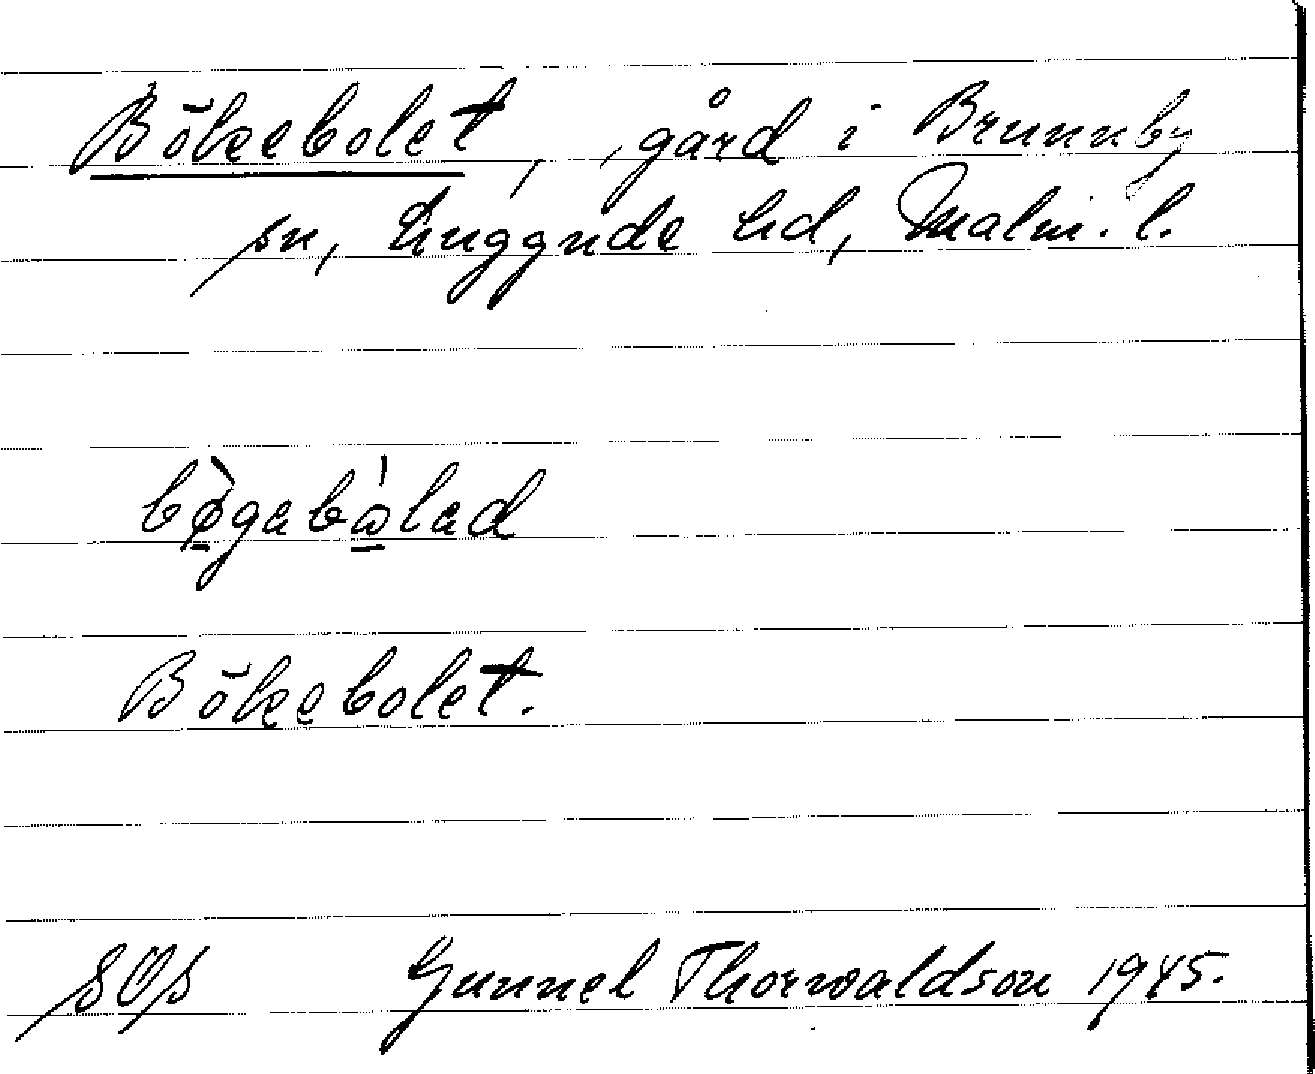 Bökebolet, gård i Brunnby
sn, Luggude hd, Malm. l.
bø̀gabω̍lad
Bökebolet.
SOS Gunnel Thorwaldson 1945.